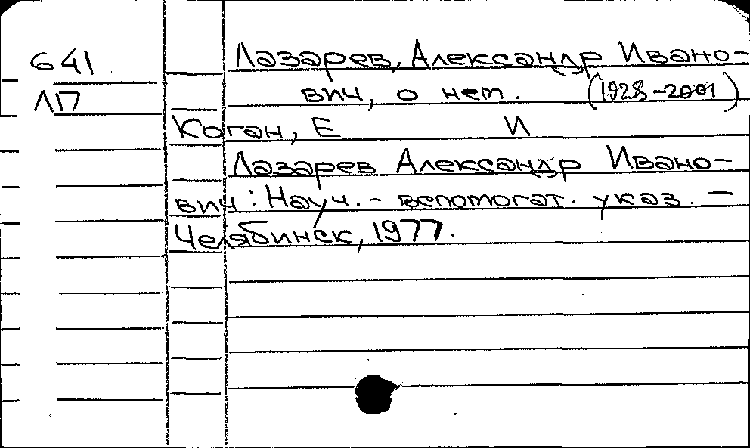 641
ЛП
Лазарев, Александр Ивано-
вич, о нем. (1928-2001)
Коган, Е И
Лазарев Александр Ивано-
вич: Науч.- вспомогат. указ. -
Челябинск, 1977.